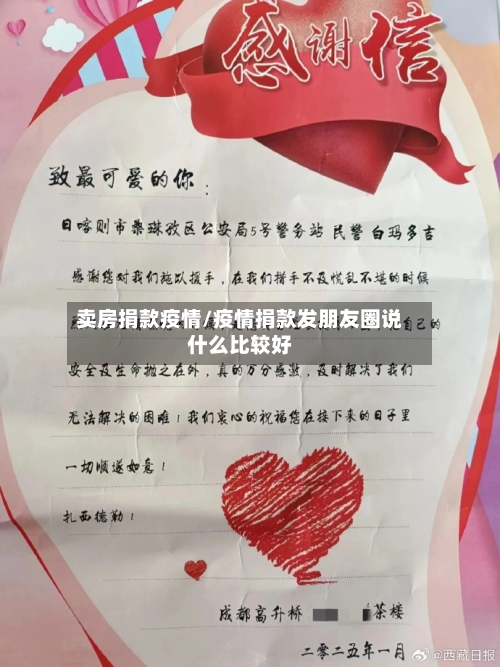 感谢信
致最可爱的你：
日喀则市桑珠孜区公安局5号警务站 民警 白玛多吉
感谢您对我们施以援手，在我们措手不及慌乱不堪的时候
卖房捐款疫情/疫情捐款发朋友圈说
什么比较好
自己的
安全及生命抛之在外，真的万分感激，及时解决了我们
无法解决的困难！我们衷心的祝福您在接下来的日子里
一切顺遂如意！
扎西德勒！
成都高升桥 茶楼
二零二五年一月
@西藏日报